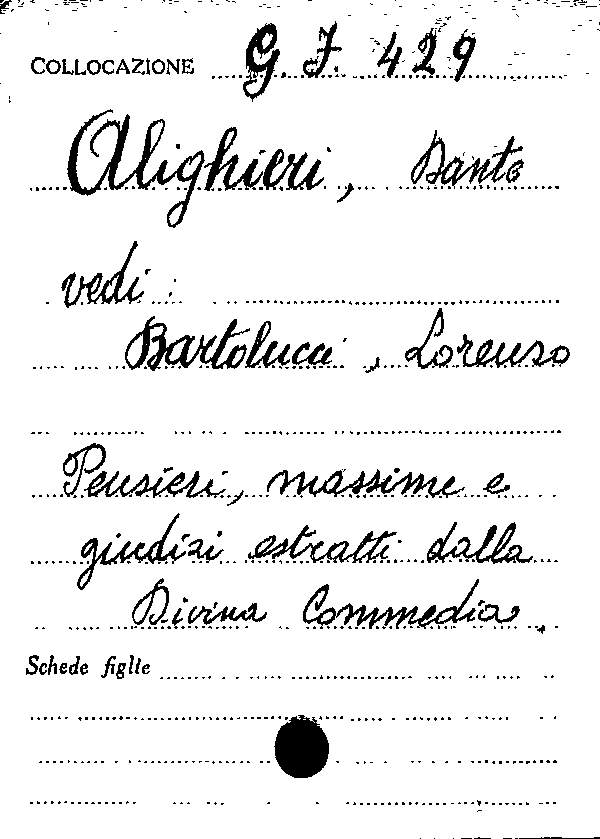 COLLOCAZIONE G. J. 429
Alighieri, Dante
vedi :
Bartolucci, Lorenzo
Pensieri, massime e
giudizi estratti dalla
Divina Commedia.
Schede figlie